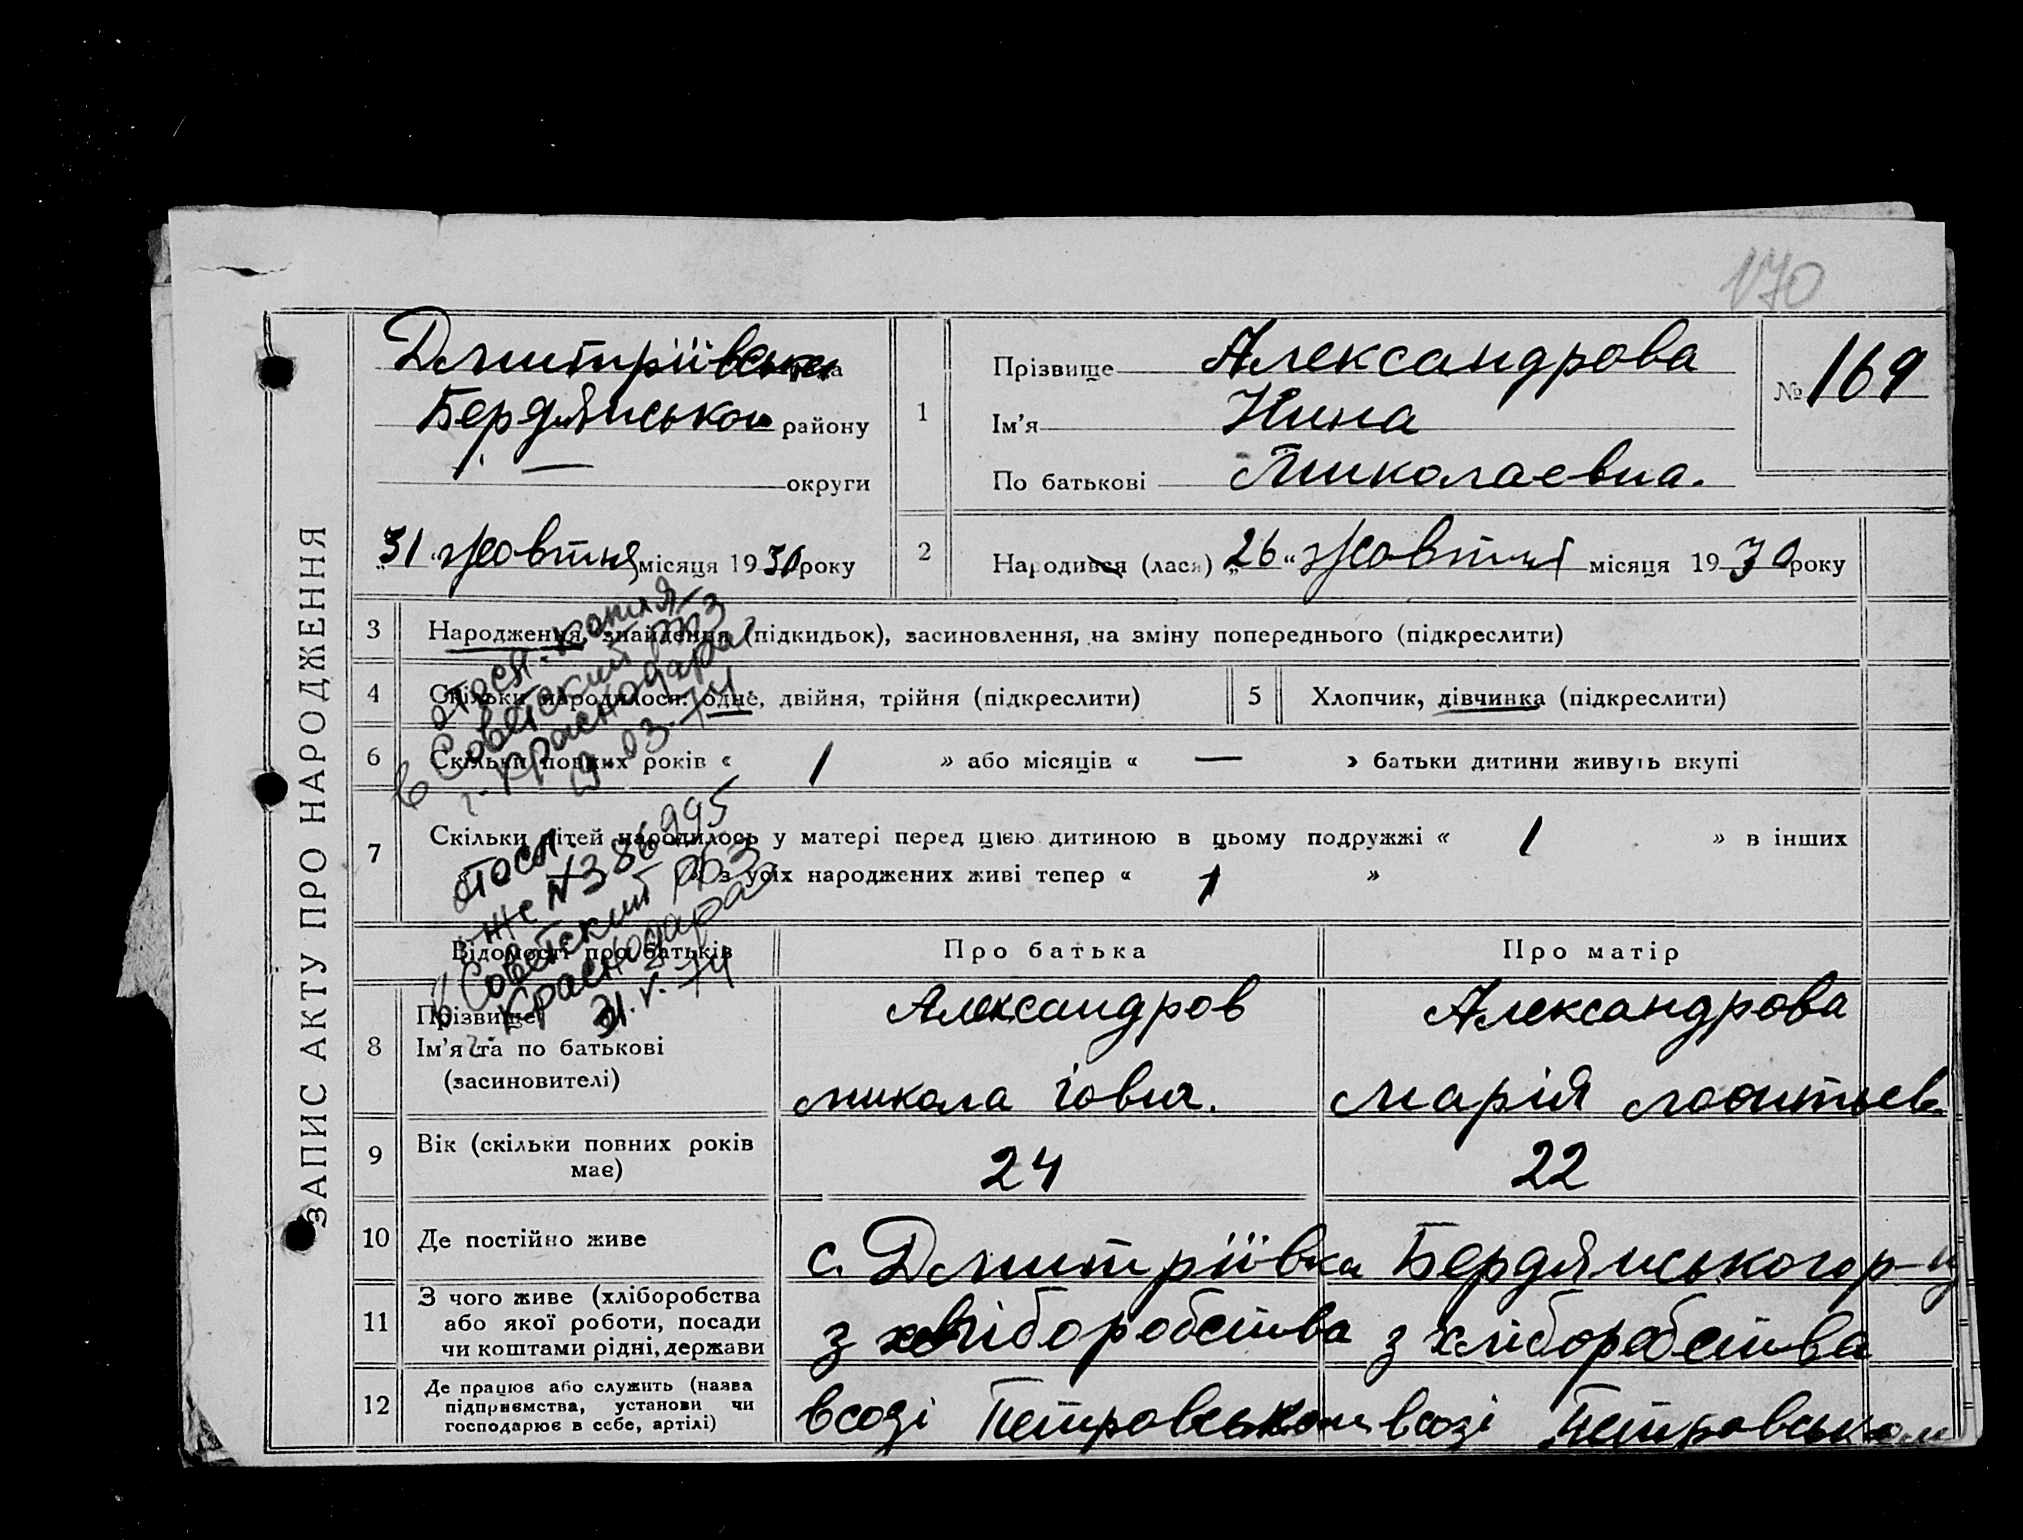 170
ЗАПИС АКТУ ПРО НАРОДЖЕННЯ
Дмитріівська
Бердянського району
— округи
„31 “ жовтня місяця 1930 року
1
Прізвище Александрова
Ім'я Нина
По батькові Миколаевна.
№ 169
2
Народився (лася) „26 “ жовтня місяця 1930 року
3 Народження, знайдення (підкидьок), засиновлення, на зміну попереднього (підкреслити)
4 Скільки народилося: одне, двійня, трійня (підкреслити)
5 Хлопчик, дівчинка (підкреслити)
6 Скільки повних років « 1 » або місяців « — » батьки дитини живуть вкупі
7 Скільки дітей народилось у матері перед цією дитиною в цьому подружжі « 1 » в інших
з усіх народжених живі тепер « 1 »
отосл. копия
в Советский РБЗ
г. Краснодара
19.03.74
отосл.
ЖС №386995
в Советский РБЗ
г. Краснодара
31.V.74
Відомості про батьків Про батька Про матір
8 Прізвище Александров Александрова
Ім'я та по батькові
(засиновителі) микола іович. марія леонтьев
9 Вік (скільки повних років
має) 24 22
10 Де постійно живе с. Дмитріівка Бердянського р-у
11 З чого живе (хліборобства
або якої роботи, посади
чи коштами рідні, держави з хліборобства з хліборобства
12 Де працює або служить (назва
підприємства, установи чи
господарює в себе, артілі) всозі Петровському всозі Петровськом